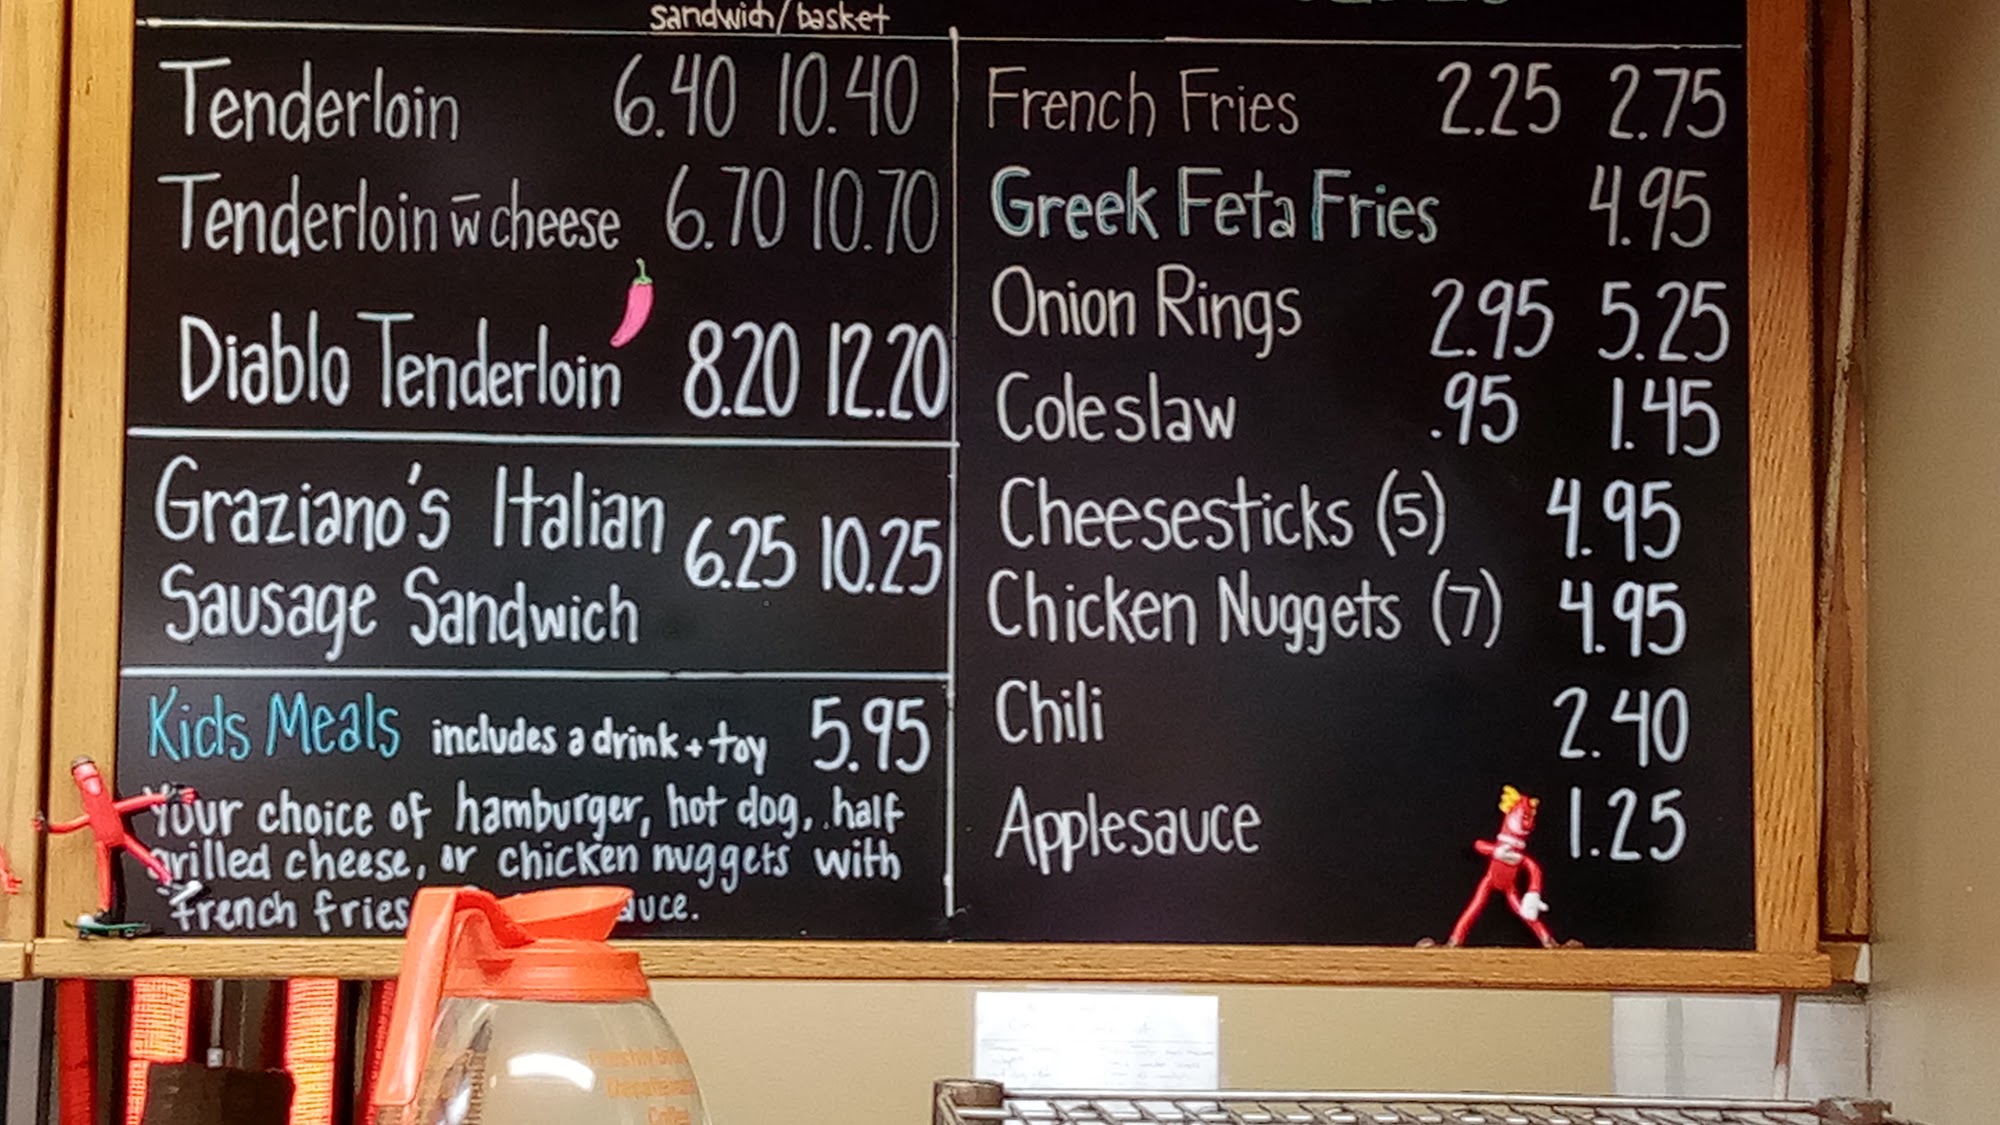 sandwich/basket
Tenderloin 6.40 10.40
Tenderloin w̅ cheese 6.70 10.70
Diablo Tenderloin 8.20 12.20
Graziano's Italian
Sausage Sandwich 6.25 10.25
Kids Meals includes a drink + toy 5.95
Your choice of hamburger, hot dog, half
grilled cheese, or chicken nuggets with
french fries
French Fries 2.25 2.75
Greek Feta Fries 4.95
Onion Rings 2.95 5.25
Coleslaw .95 1.45
Cheesesticks (5) 4.95
Chicken Nuggets (7) 4.95
Chili 2.40
Applesauce 1.25